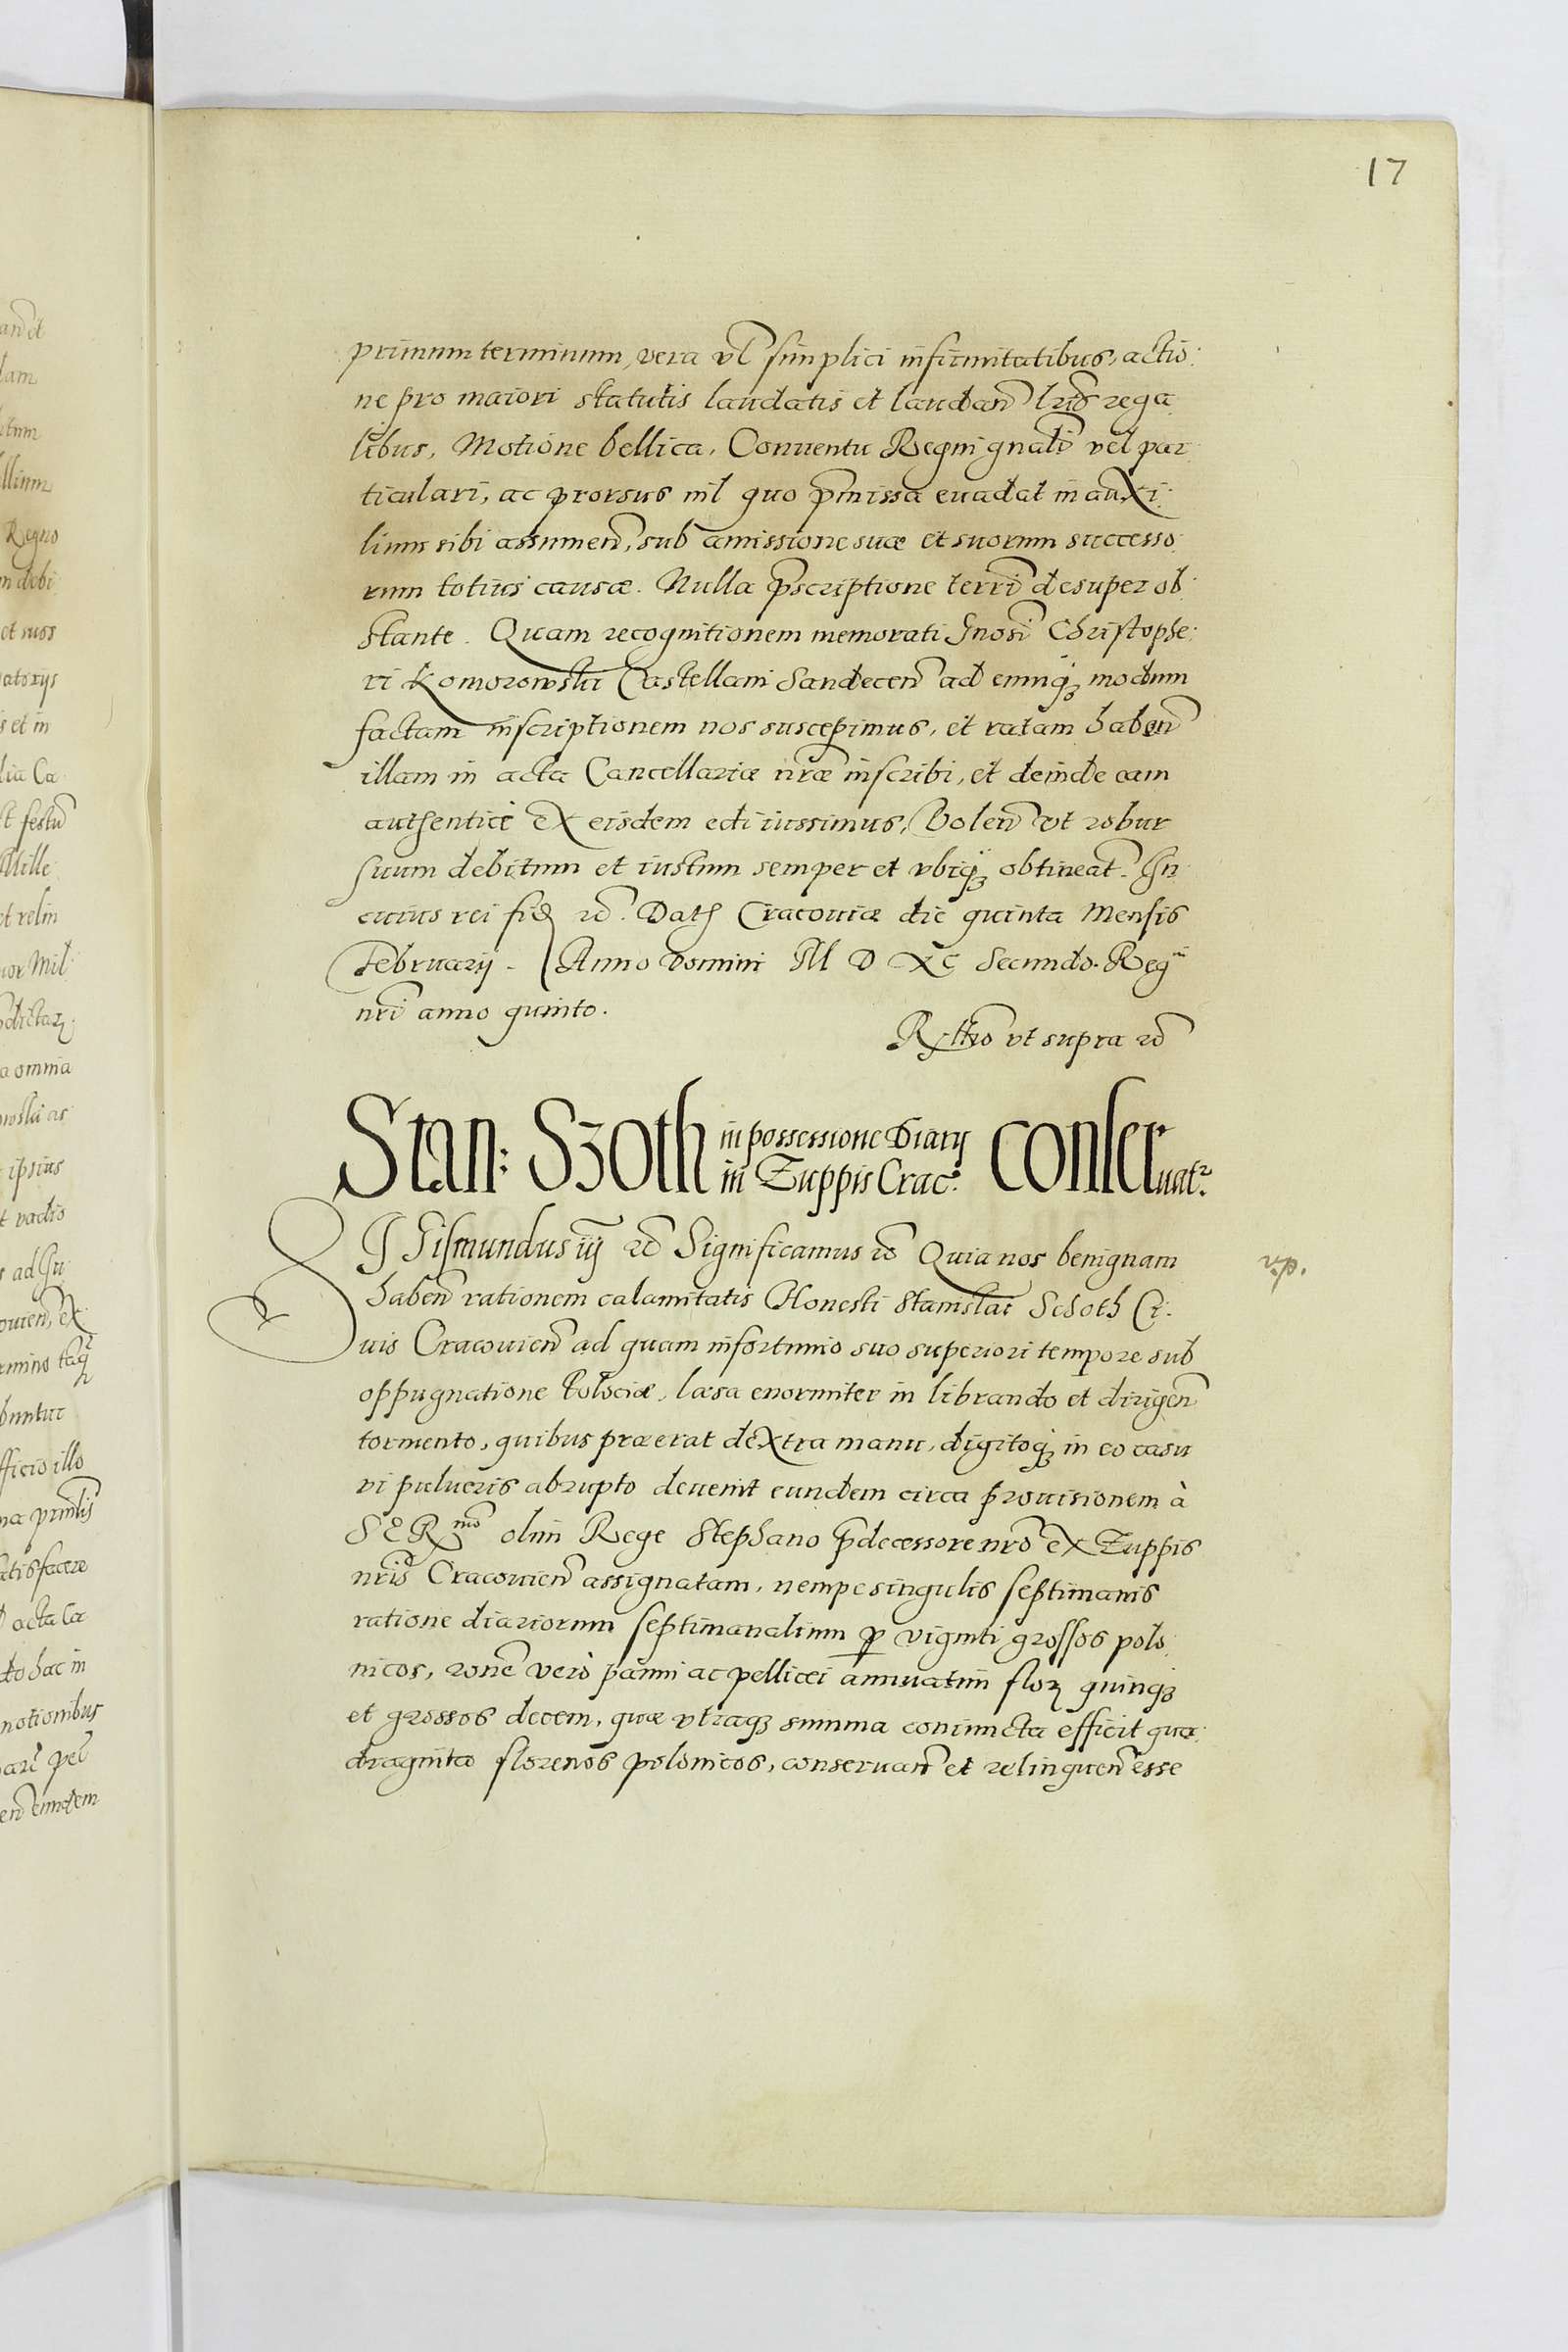 17
primum terminum, vera vl simplici infirmitatibus, actio:
ne pro maiori statutis laudatis et laudan lris rega
libus, Motione bellica, Conventu Regni gnali vel par
ticulari, ac prorsus nil quo pmissa evadat in auxi:
lium sibi assumen, sub amissione suæ et suorum successo
rum totius causæ. Nulla pscriptione terri desuper ob:
stante. Quam recognitionem memorati Gnosi Christophe:
ri Komorowski Castellani Sandecen ad eumq modum
factam inscriptionem nos suscepimus, et ratam haben
illam in acta Cancellariæ nræ inscribi, et deinde eam
authenticè ex eisdem edi iussimus, Volen vt robur
suum debitum et iustum semper et vbiq obtineat. In
cuius rei fid etc. Dat Cracoviæ die quinta Mensis
Februarij. Anno Domini M D XC Secundo. Regni
nri anno quinto.
Rltio vt supra etc
Stan: Szoth in possessione Diarij
in Zuppis Crac: conseruatr.
SIGismundus iij etc Significamus etc Quia nos benignam
haben rationem calamitatis Honesti Stanislai Schoth Ci:
uis Cracovien ad quam infortunio suo superiori tempore sub
oppugnatione Polociæ, læsa enormiter in librando et dirigen
tormento, quibus præerat dextra manu, digitoq in eo casu
vi pulveris abrupto devenit eundem circa provisionem à
SERmo olim Rege Stephano pdecessore nro ex Zuppis
nris Cracovien assignatam, nempe singulis septimanis
ratione diariorum septimanalium p viginti grossos polo
nicos, rone verò panni ac pellicei annuatim flor quinq
et grossos decem, quæ vtraq summa coniuncta efficit qua:
draginta florenos polonicos, conservan et relinquen esse